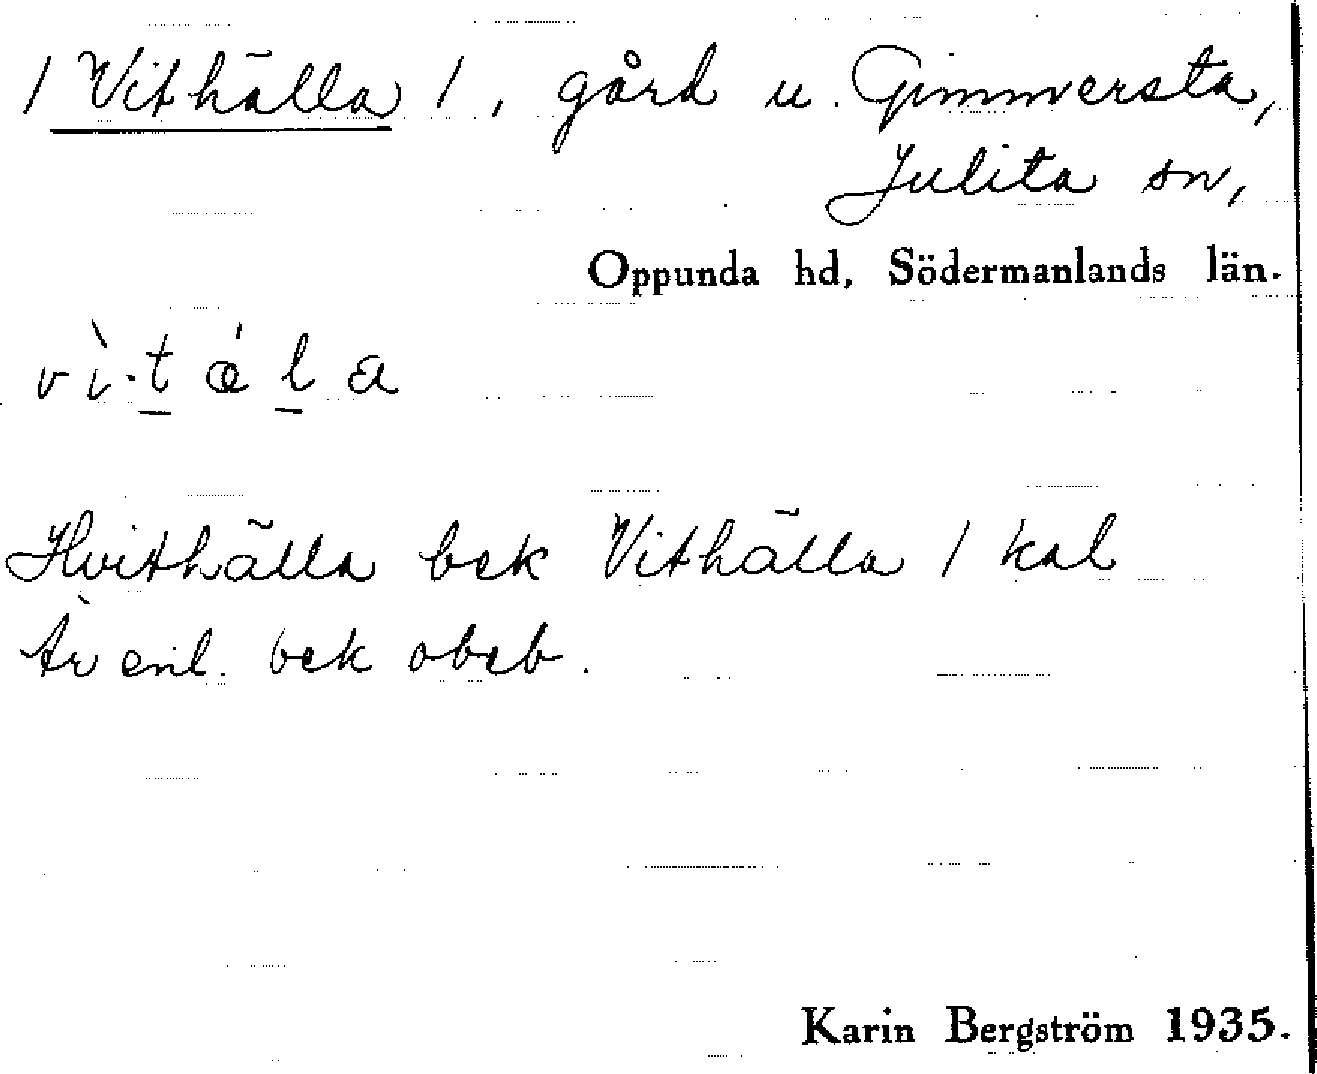 / Vithälla /, gård u. Gimmersta,
Julita sn,
Oppunda hd, Södermanlands län.
vì·t ǽ l a
Hvithälla bek Vithälla / kal
Är enl. bek obeb.
Karin Bergström 1935.